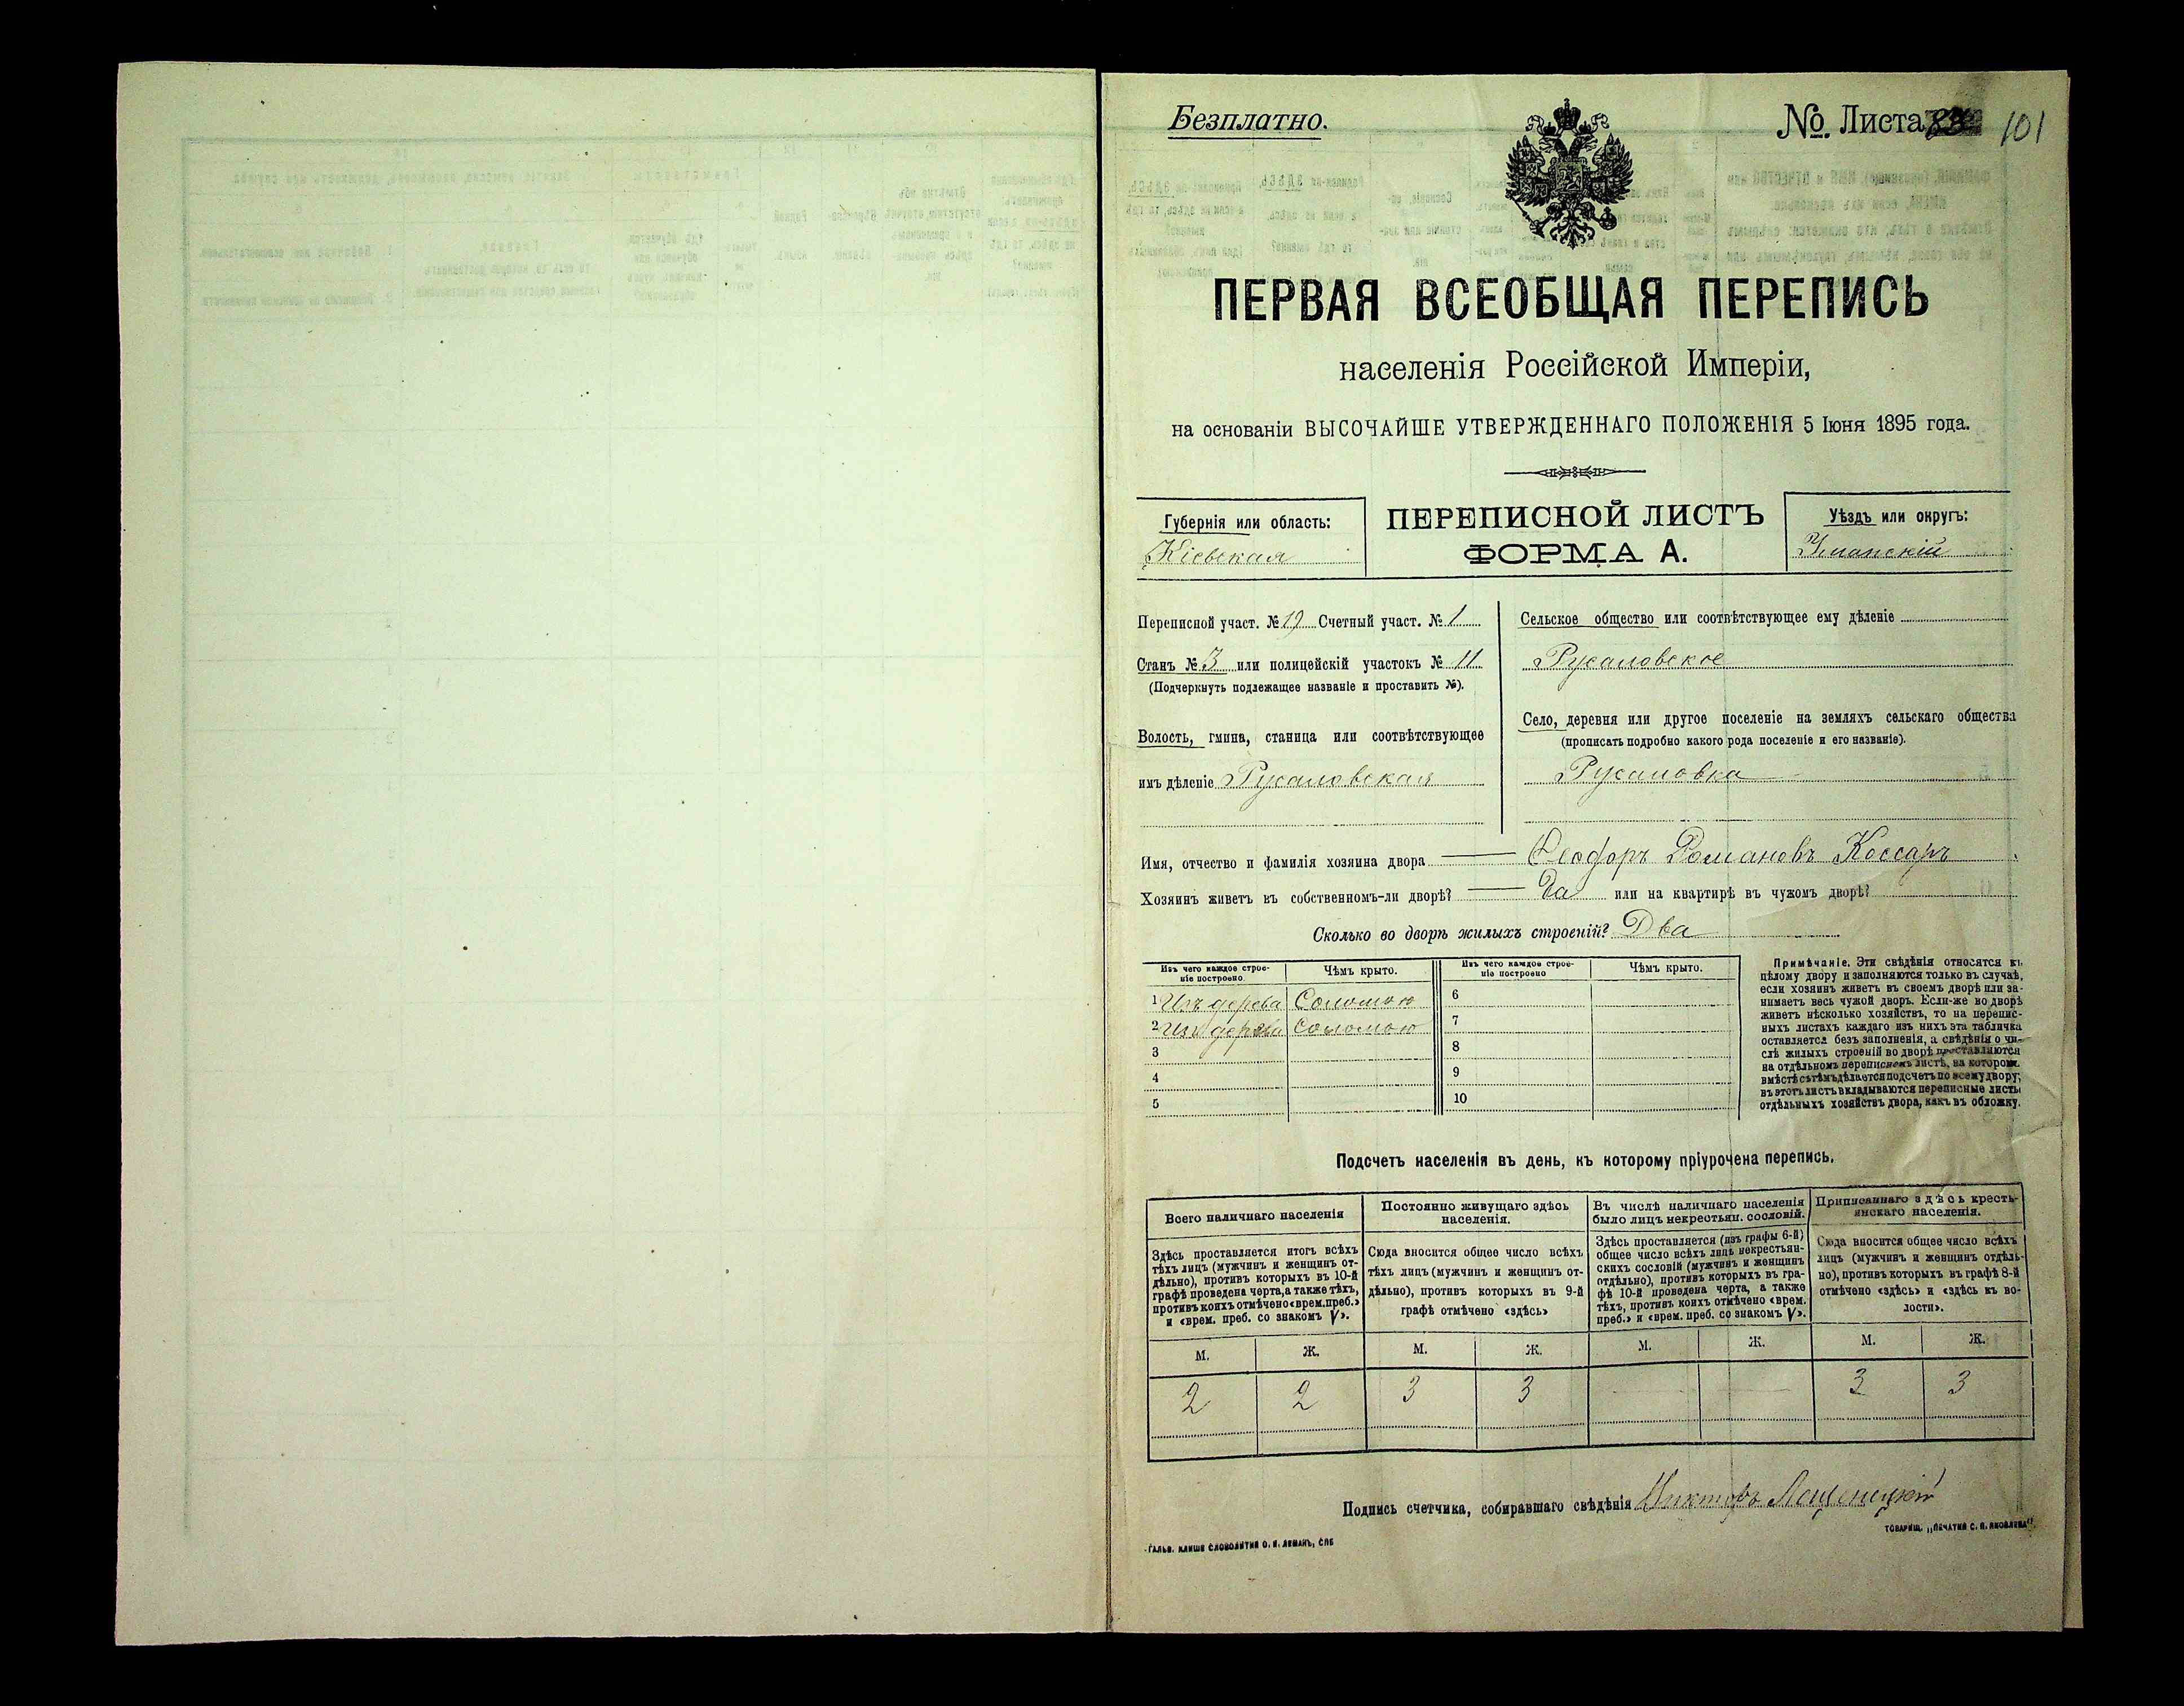 Безплатно.
№ Листа 101
ПЕРВАЯ ВСЕОБЩАЯ ПЕРЕПИСЬ
населенія Россійской Имперіи,
на основаніи ВЫСОЧАЙШЕ УТВЕРЖДЕННАГО ПОЛОЖЕНІЯ 5 Іюня 1895 года.
Губернія или область:
Кіевская
ПЕРЕПИСНОЙ ЛИСТЪ
ФОРМА А.
Уѣздъ или округъ:
Уманскій
Переписной участ. № 19 Счетный участ. № 1
Станъ № 3 или полицейскій участокъ № 11
(Подчеркнуть подлежащее названіе и проставить №).
Волость, гмина, станица или соотвѣтствующее
имъ дѣленіе Русаловская
Сельское общество или соотвѣтствующее ему дѣленіе
Русаловское
Село, деревня или другое поселеніе на земляхъ сельскаго общества
(прописать подробно какого рода поселеніе и его названіе).
Русаловка
Имя, отчество и фамилія хозяина двора Феодоръ Романовъ Коссаръ
Хозяинъ живетъ въ собственномъ-ли дворѣ? Да или на квартирѣ въ чужомъ дворѣ?
Сколько во дворѣ жилыхъ строеній? Два
Изъ чего каждое строе-
ніе построено.
Чѣмъ крыто.
Изъ чего каждое строе-
ніе построено
Чѣмъ крыто.
1 Изъ дерева Соломою 6
2 Изъ дерева Соломою 7
3 8
4 9
5 10
Примѣчаніе. Эти свѣдѣнія относятся къ
цѣлому двору и заполняются только въ случаѣ,
если хозяинъ живетъ въ своемъ дворѣ или за-
нимаетъ весь чужой дворъ. Если-же во дворѣ
живетъ нѣсколько хозяйствъ, то на перепис-
ныхъ листахъ каждаго изъ нихъ эта табличка
оставляется безъ заполненія, а свѣдѣнія о чи-
слѣ жилыхъ строеній во дворѣ проставляются
на отдѣльномъ переписномъ листѣ, на которомъ
вмѣстѣ съ тѣмъ дѣлается подсчетъ по всему двору;
въ этотъ листъ вкладываются переписные листы
отдѣльныхъ хозяйствъ двора, какъ въ обложку.
Подсчетъ населенія въ день, къ которому пріурочена перепись.
Всего наличнаго населенія
Постоянно живущаго здѣсь
населенія.
Въ числѣ наличнаго населенія
было лицъ некрестьян. сословій.
Приписаннаго здѣсь кресть-
янскаго населенія.
Здѣсь проставляется итогъ всѣхъ
тѣхъ лицъ (мужчинъ и женщинъ от-
дѣльно), противъ которыхъ въ 10-й
графѣ проведена черта, а также тѣхъ,
противъ коихъ отмѣчено «врем. преб.»
и «врем. преб. со знакомъ V».
Сюда вносится общее число всѣхъ
тѣхъ лицъ (мужчинъ и женщинъ от-
дѣльно), противъ которыхъ въ 9-й
графѣ отмѣчено «здѣсь»
Здѣсь проставляется (изъ графы 6-й)
общее число всѣхъ лицъ некрестьян-
скихъ сословій (мужчинъ и женщинъ
отдѣльно), противъ которыхъ въ гра-
фѣ 10-й проведена черта, а также
тѣхъ, противъ коихъ отмѣчено «врем.
преб.» и «врем. преб. со знакомъ V».
Сюда вносится общее число всѣхъ
лицъ (мужчинъ и женщинъ отдѣль-
но), противъ которыхъ въ графѣ 8-й
отмѣчено «здѣсь» и «здѣсь къ во-
лости».
М. Ж. М. Ж. М. Ж. М. Ж.
2 2 3 3 — — 3 3
Подпись счетчика, собиравшаго свѣдѣнія
ТОВАРИЩ. „ПЕЧАТНЯ С. П. ЯКОВЛЕВА".
ГАЛЬВ. КЛИШЕ СЛОВОЛИТНИ О. И. ЛЕМАНЪ, СПБ